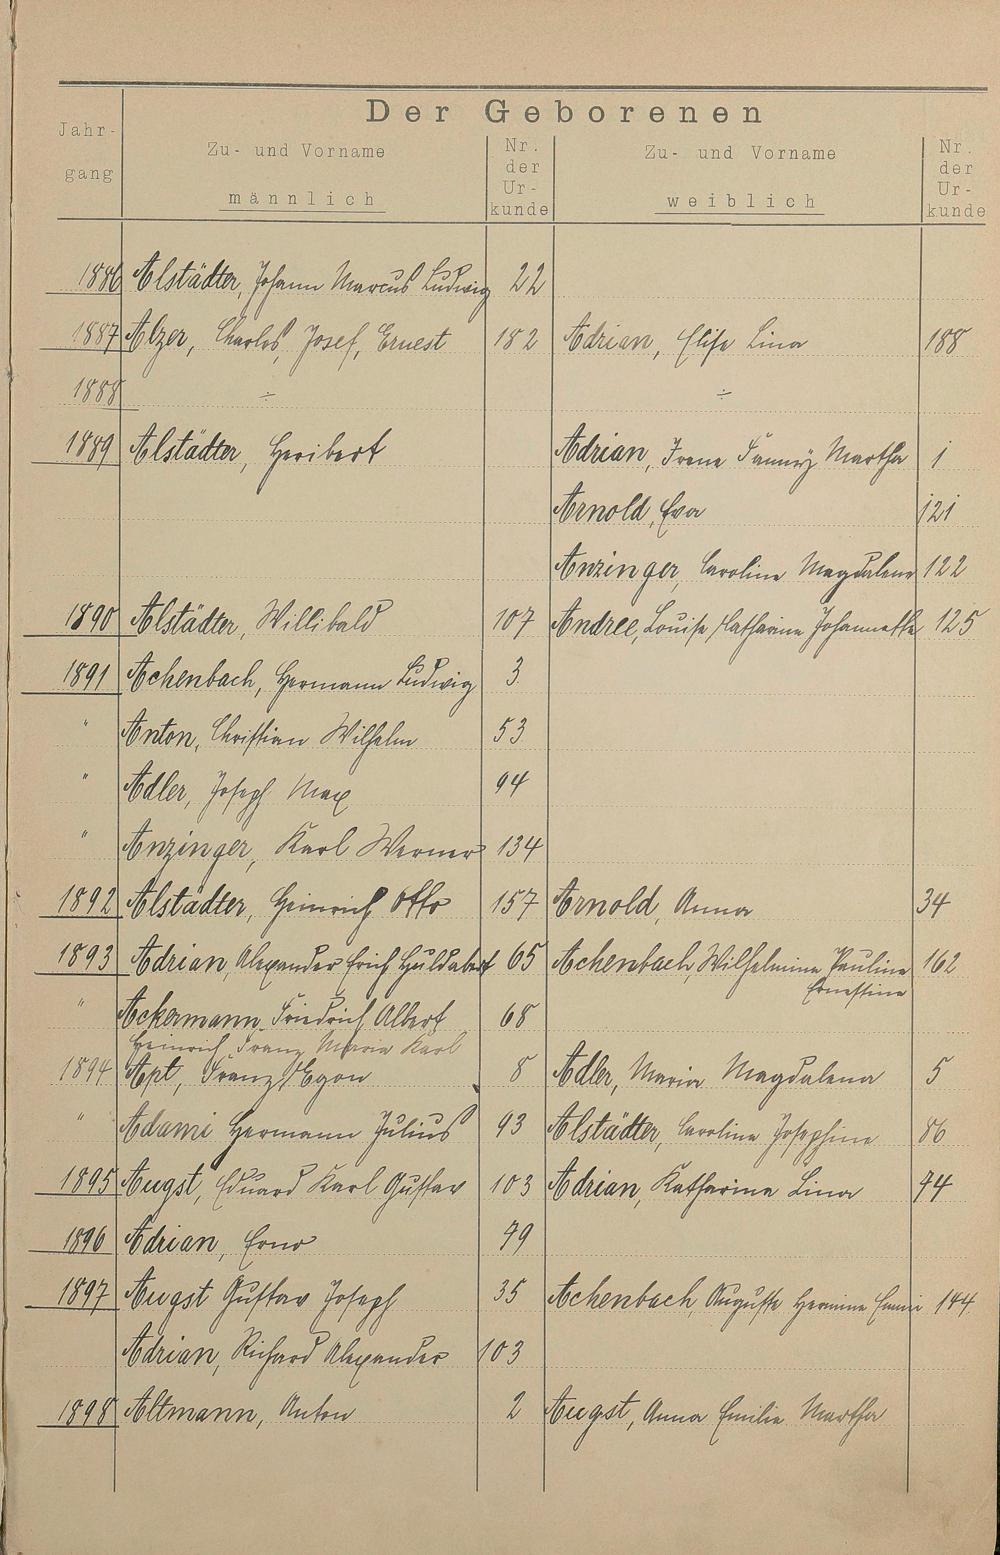 Der Geborenen
Jahr-
gang
Zu- und Vorname
männlich
Nr.
der
Ur-
kunde
Zu- und Vorname
weiblich
Nr.
der
Ur-
kunde
1886 Alstädter, Johann Marcus Ludwig 22
1887 Alzer, Charles, Josef, Ernest 182 Adrian, Elise Lina 188
1888 ÷ ÷
1889 Alstädter, Heribert Adrian, Irene Fanny Martha 1
Arnold, Eva 121
Anzinger, Caroline Magdalene 122
1890 Alstädter, Willibald 107 Andree, Louise Catharine Johannette 125
1891 Achenbach, Hermann Ludwig 3
" Anton, Christian Wilhelm 53
" Adler, Joseph Max 94
" Anzinger, Karl Werner 134
1892 Alstädter, Heinrich Otto 157 Arnold, Anna 34
1893 Adrian, Alexander Erich Huldabert 65 Achenbach, Wilhelmine Pauline 162
Ernestine
" Ackermann, Friedrich Albert 68
Heinrich Franz Maria Karl
1894 Apt, Franz Egon 8 Adler, Maria Magdalena 5
" Adami Hermann Julius 93 Alstädter, Caroline Josephine 86
1895 Augst, Eduard Karl Gustav 103 Adrian, Katharina Lina 74
1896 Adrian, Erno 79
1897 Augst Gustav Joseph 35 Achenbach, Auguste Hermine 144
Adrian, Richard Alexander 103
1898 Altmann, Anton 2 Augst, Anna Emilie Martha